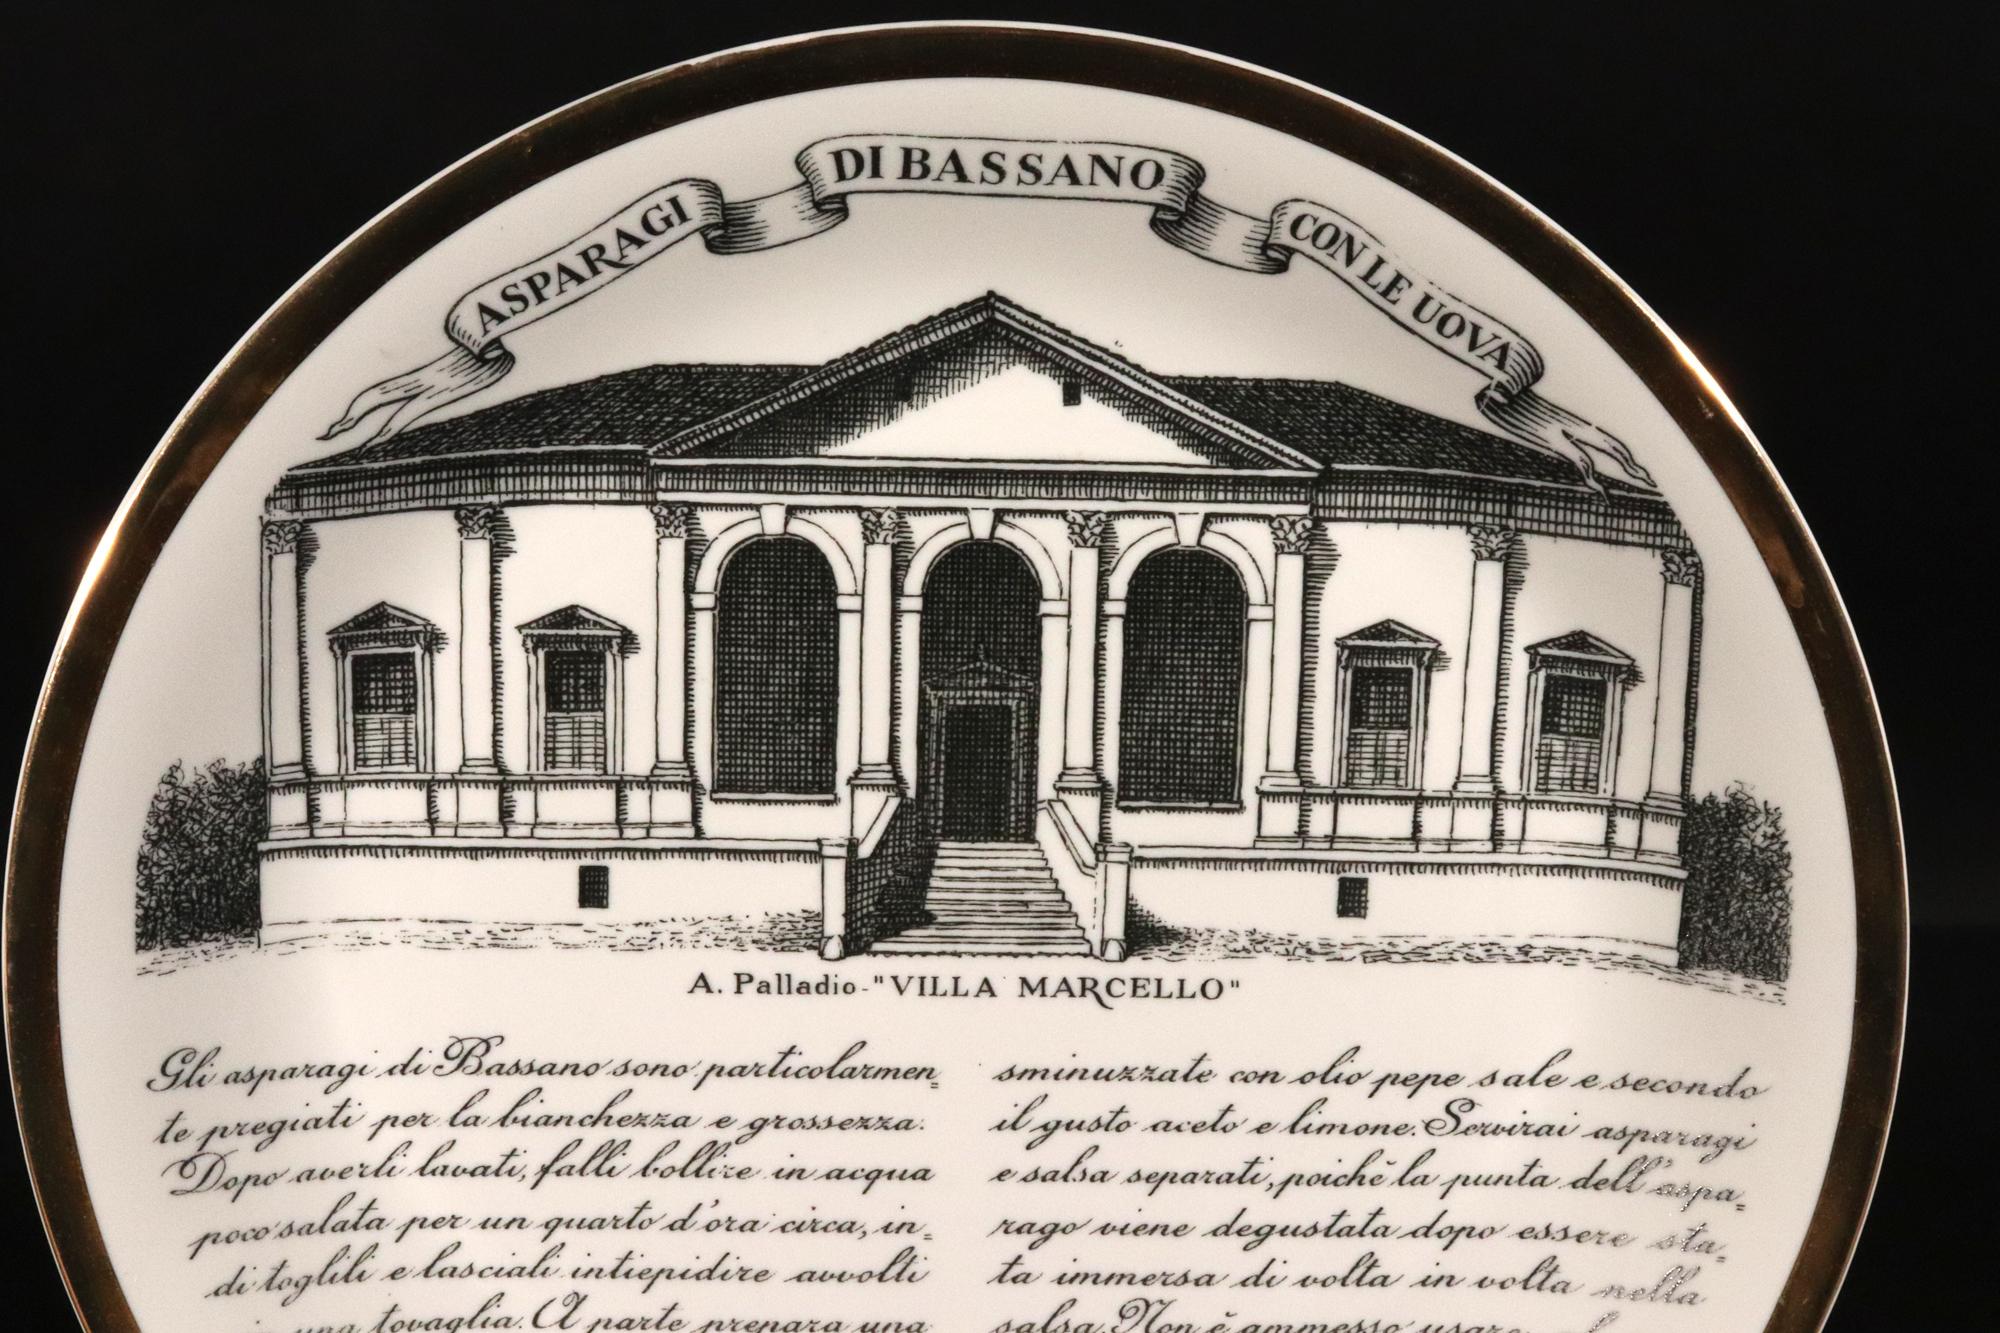 ASPARAGI DI BASSANO CON LE UOVA
A. Palladio - "VILLA MARCELLO"
Gli asparagi di Bassano sono particolarmen=
te pregiati per la bianchezza e grossezza.
Dopo averli lavati, falli bollire in acqua
poco salata per un quarto d'ora circa, in=
di toglili e lasciali intiepidire avvolti
una tovaglia. A parte prepara una
sminuzzate con olio pepe sale e secondo
il gusto aceto e limone. Servirai asparagi
e salsa separati, poichè la punta dell'aspa=
rago viene degustata dopo essere sta=
ta immersa di volta in volta nella
salsa. Non è ammesso usare